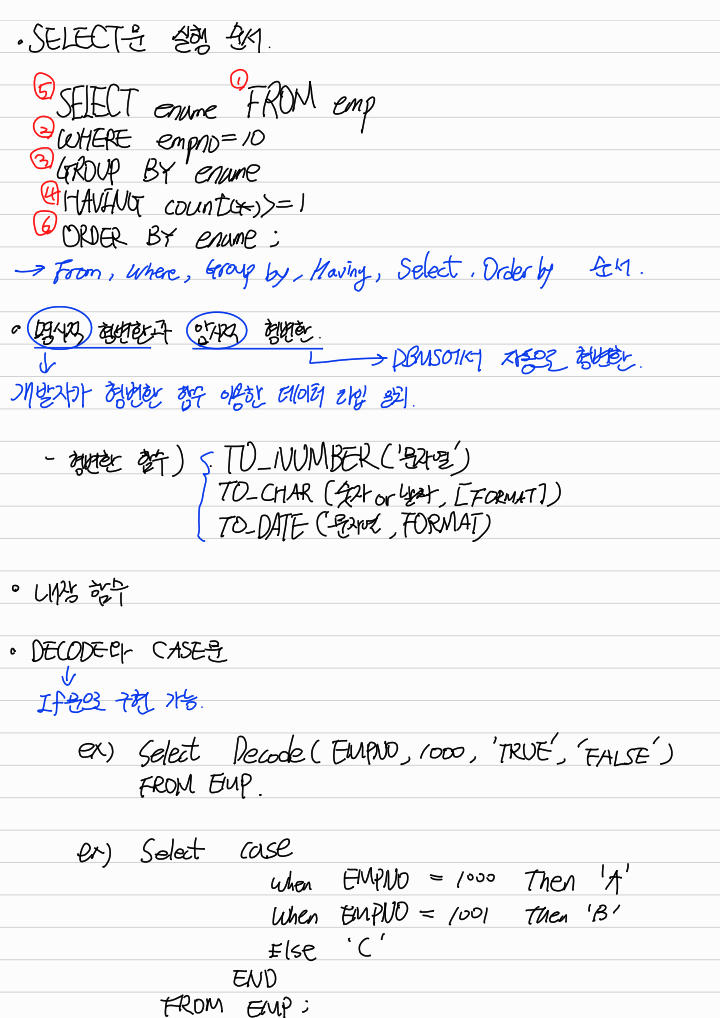 • SELECT문 실행 순서.
⑤ SELECT ename ① FROM emp
② WHERE empno=10
③ GROUP BY ename
④ HAVING count(*)>=1
⑥ ORDER BY ename ;
→ From, where, Group by, Having, Select, Order by 순서.
• 명시적 형변환과 암시적 형변환.
↓ → DBMS에서 자동으로 형변환.
개발자가 형변환 함수 이용한 데이터 타입 변환.
- 형변환 함수) TO_NUMBER('문자열')
TO_CHAR (숫자 or 날짜, [FORMAT])
TO_DATE ('문자열', FORMAT)
• 내장 함수
• DECODE와 CASE문
↓
If문으로 구현 가능.
ex) Select Decode( EMPNO, 1000, 'TRUE', 'FALSE')
FROM EMP.
ex) Select case
when EMPNO = 1000 Then 'A'
When EMPNO = 1001 then 'B'
Else 'C'
END
FROM EMP ;